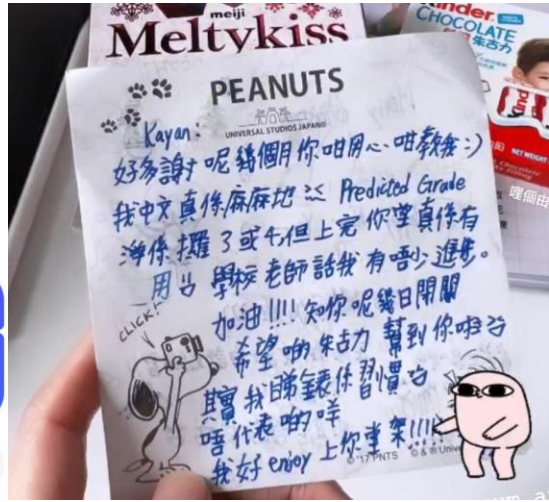 meiji
Meltykiss
Kinder
CHOCOLATE
朱古力
NET WEIGHT
PEANUTS
UNIVERSAL STUDIOS JAPAN®
Kayan:
好多謝呢幾個月你咁用心咁教我:)
我中文真係麻麻地 Predicted Grade
淨係攞3或4,但上完你堂真係有
用 學校老師話我有唔少進步。
加油!!!! 知你呢幾日閉關
希望啲朱古力幫到你啦
其實我睇錶係習慣
唔代表啲咩
我好enjoy上你堂架!!!!
CLICK!
哩個由
'17 PNTS © & ® Univ